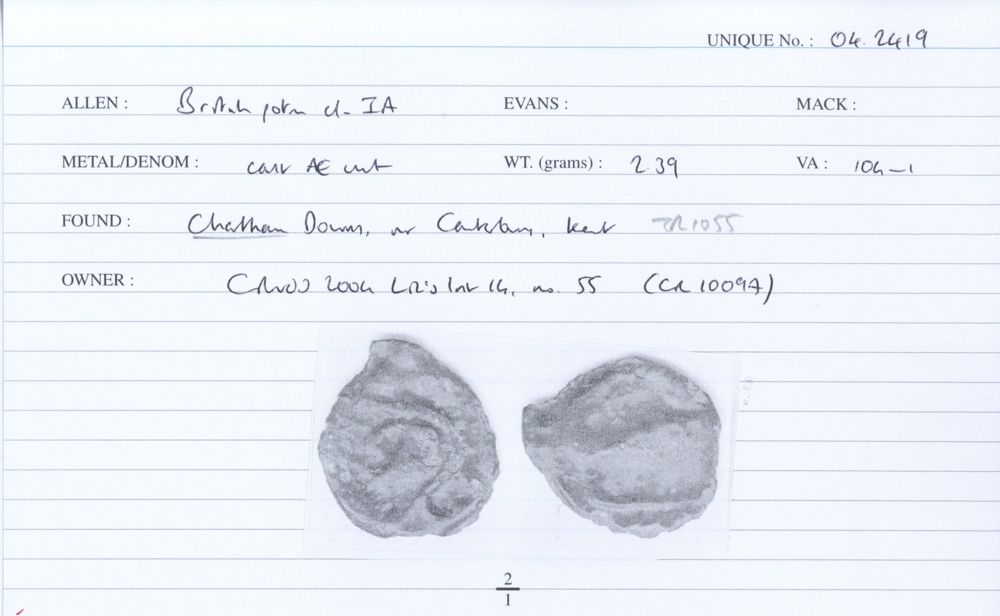 UNIQUE No. : 04.2419
ALLEN : British potin cl. IA EVANS : MACK :
METAL/DENOM : cast AE unit WT. (grams) : 2.39 VA : 104-1
FOUND : Chatham Downs, nr Canterbury, Kent TR1055
OWNER : 2004 no. 55 (CR 1009A)
2
1